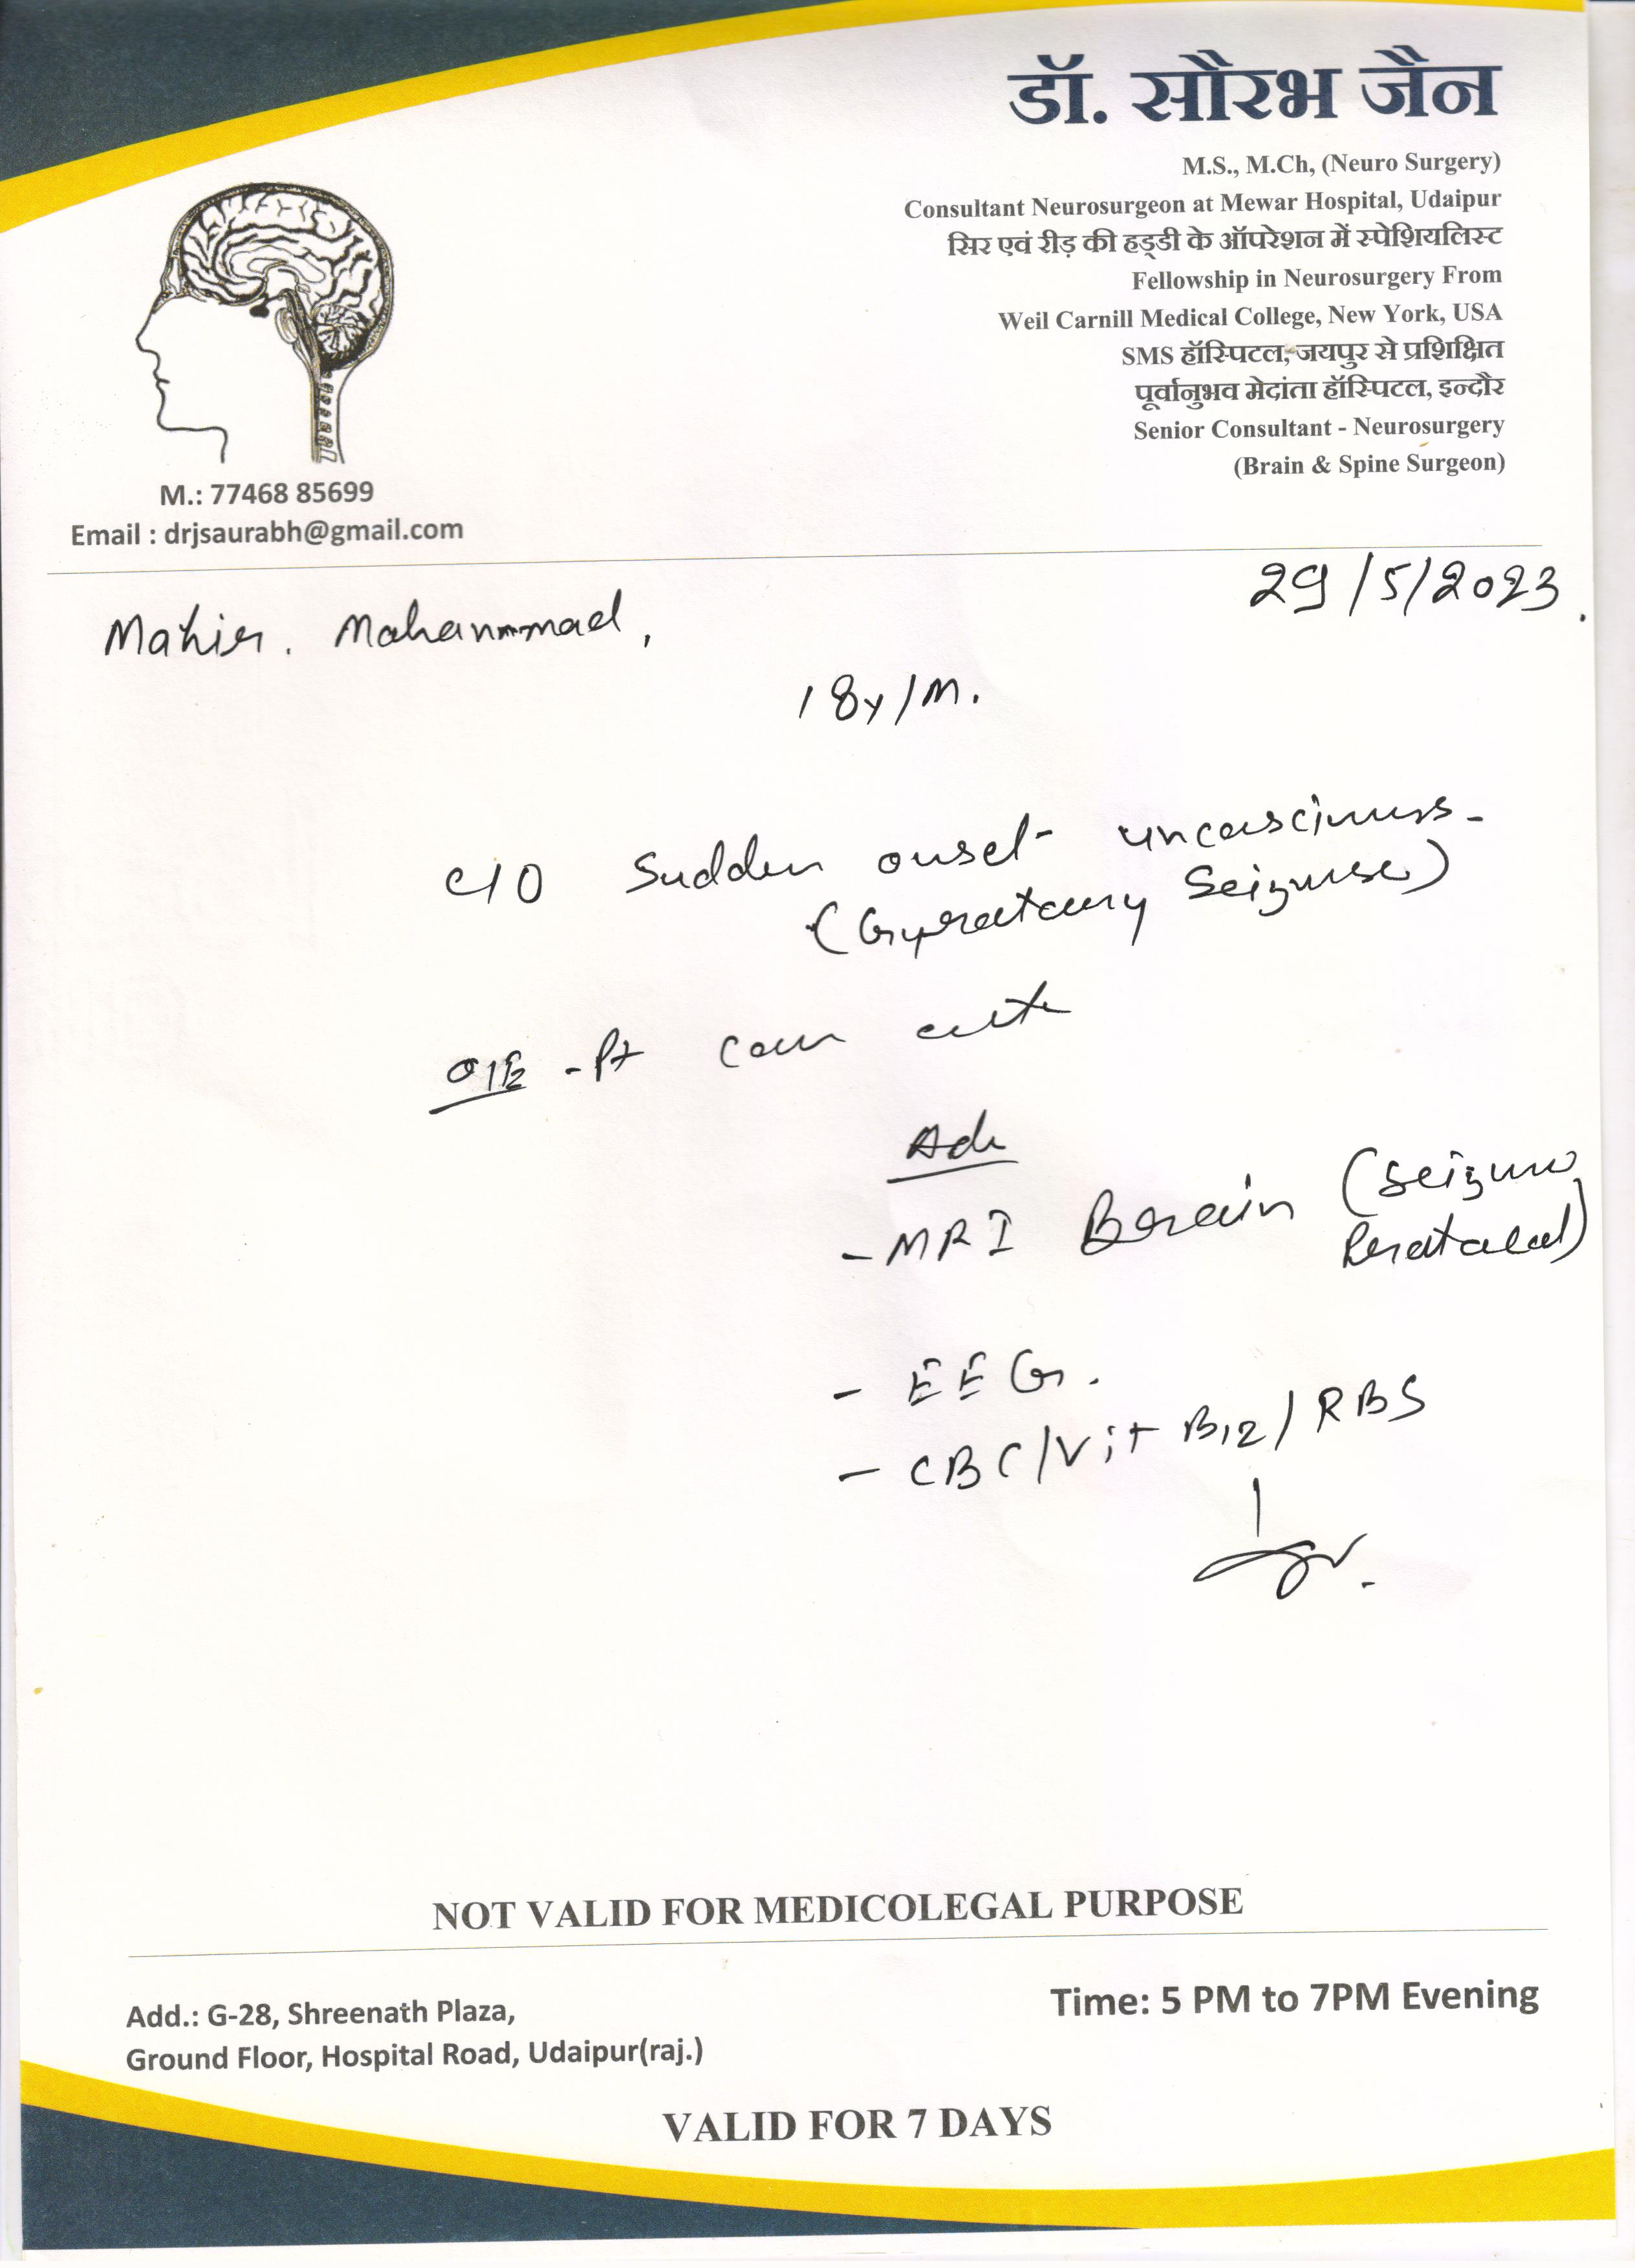 डॉ. सौरभ जैन
M.S., M.Ch, (Neuro Surgery)
Consultant Neurosurgeon at Mewar Hospital, Udaipur
सिर एवं रीड़ की हड्डी के ऑपरेशन में स्पेशियलिस्ट
Fellowship in Neurosurgery From
Weil Carnill Medical College, New York, USA
SMS हॉस्पिटल, जयपुर से प्रशिक्षित
पूर्वानुभव मेदांता हॉस्पिटल, इन्दौर
Senior Consultant - Neurosurgery
(Brain & Spine Surgeon)
M.: 77468 85699
Email : drjsaurabh@gmail.com
29/5/2023.
Mohammad,
18y/M.
C/O Sudden onset
(Gyratory Seizure)
O/E - Pt
Adv
- MRI Brain (Seizure
- EEG.
- CBC/Vit B12/RBS
NOT VALID FOR MEDICOLEGAL PURPOSE
Add.: G-28, Shreenath Plaza,
Ground Floor, Hospital Road, Udaipur(raj.)
Time: 5 PM to 7PM Evening
VALID FOR 7 DAYS